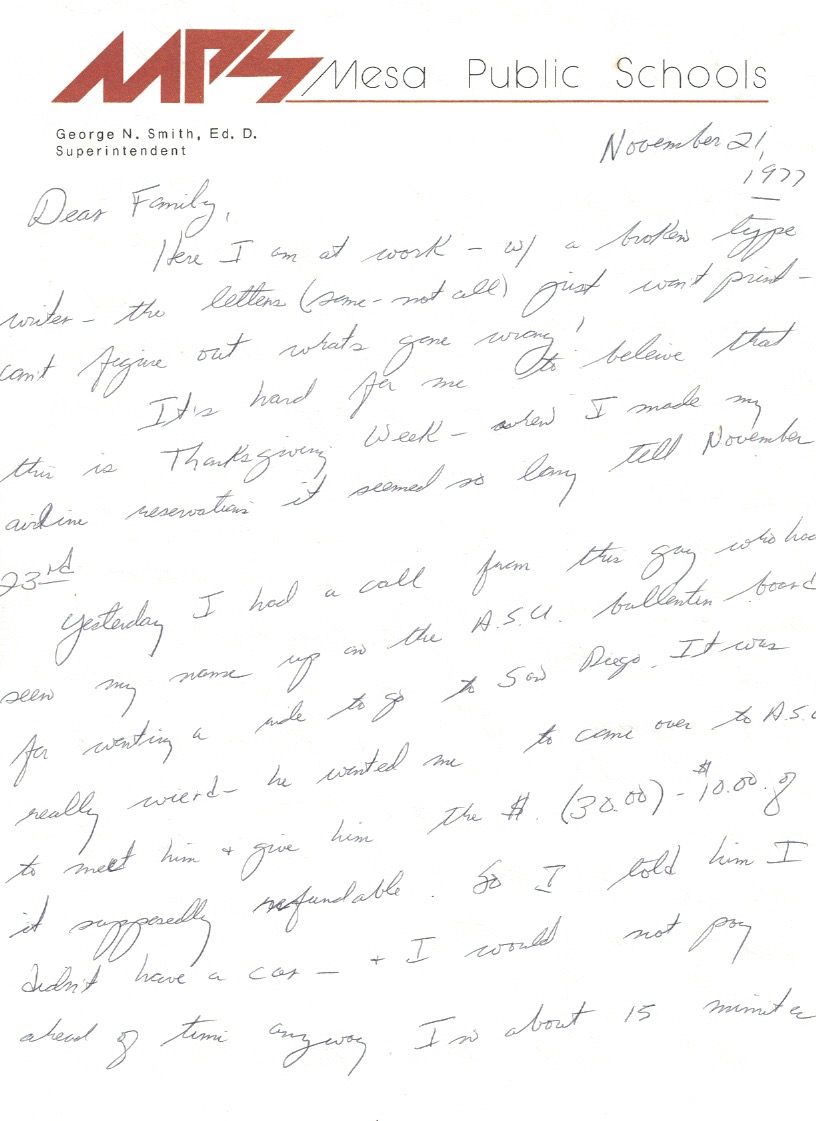 MPS Mesa Public Schools
George N. Smith, Ed. D.
Superintendent
November 21,
1977
Dear Family,
Here I am at work - w/ a broken type
writer - the letters (some - not all) just won't print -
can't figure out whats gone wrong!
It's hard for me to beleive that
this is Thanksgiving Week - when I made my
airline reservations it seemed so long tell November
23rd
Yesterday I had a call from this guy who had
seen my name up on the A.S.U. bullenten board
for wanting a ride to go to San Diego. It was
really wierd - he wanted me to come over to A.S.U
to meet him + give him the $. (30.00) - $10.00 of
it supposedly refundable. So I told him I
didn't have a car - + I would not pay
ahead of time anyway. In about 15 minutes